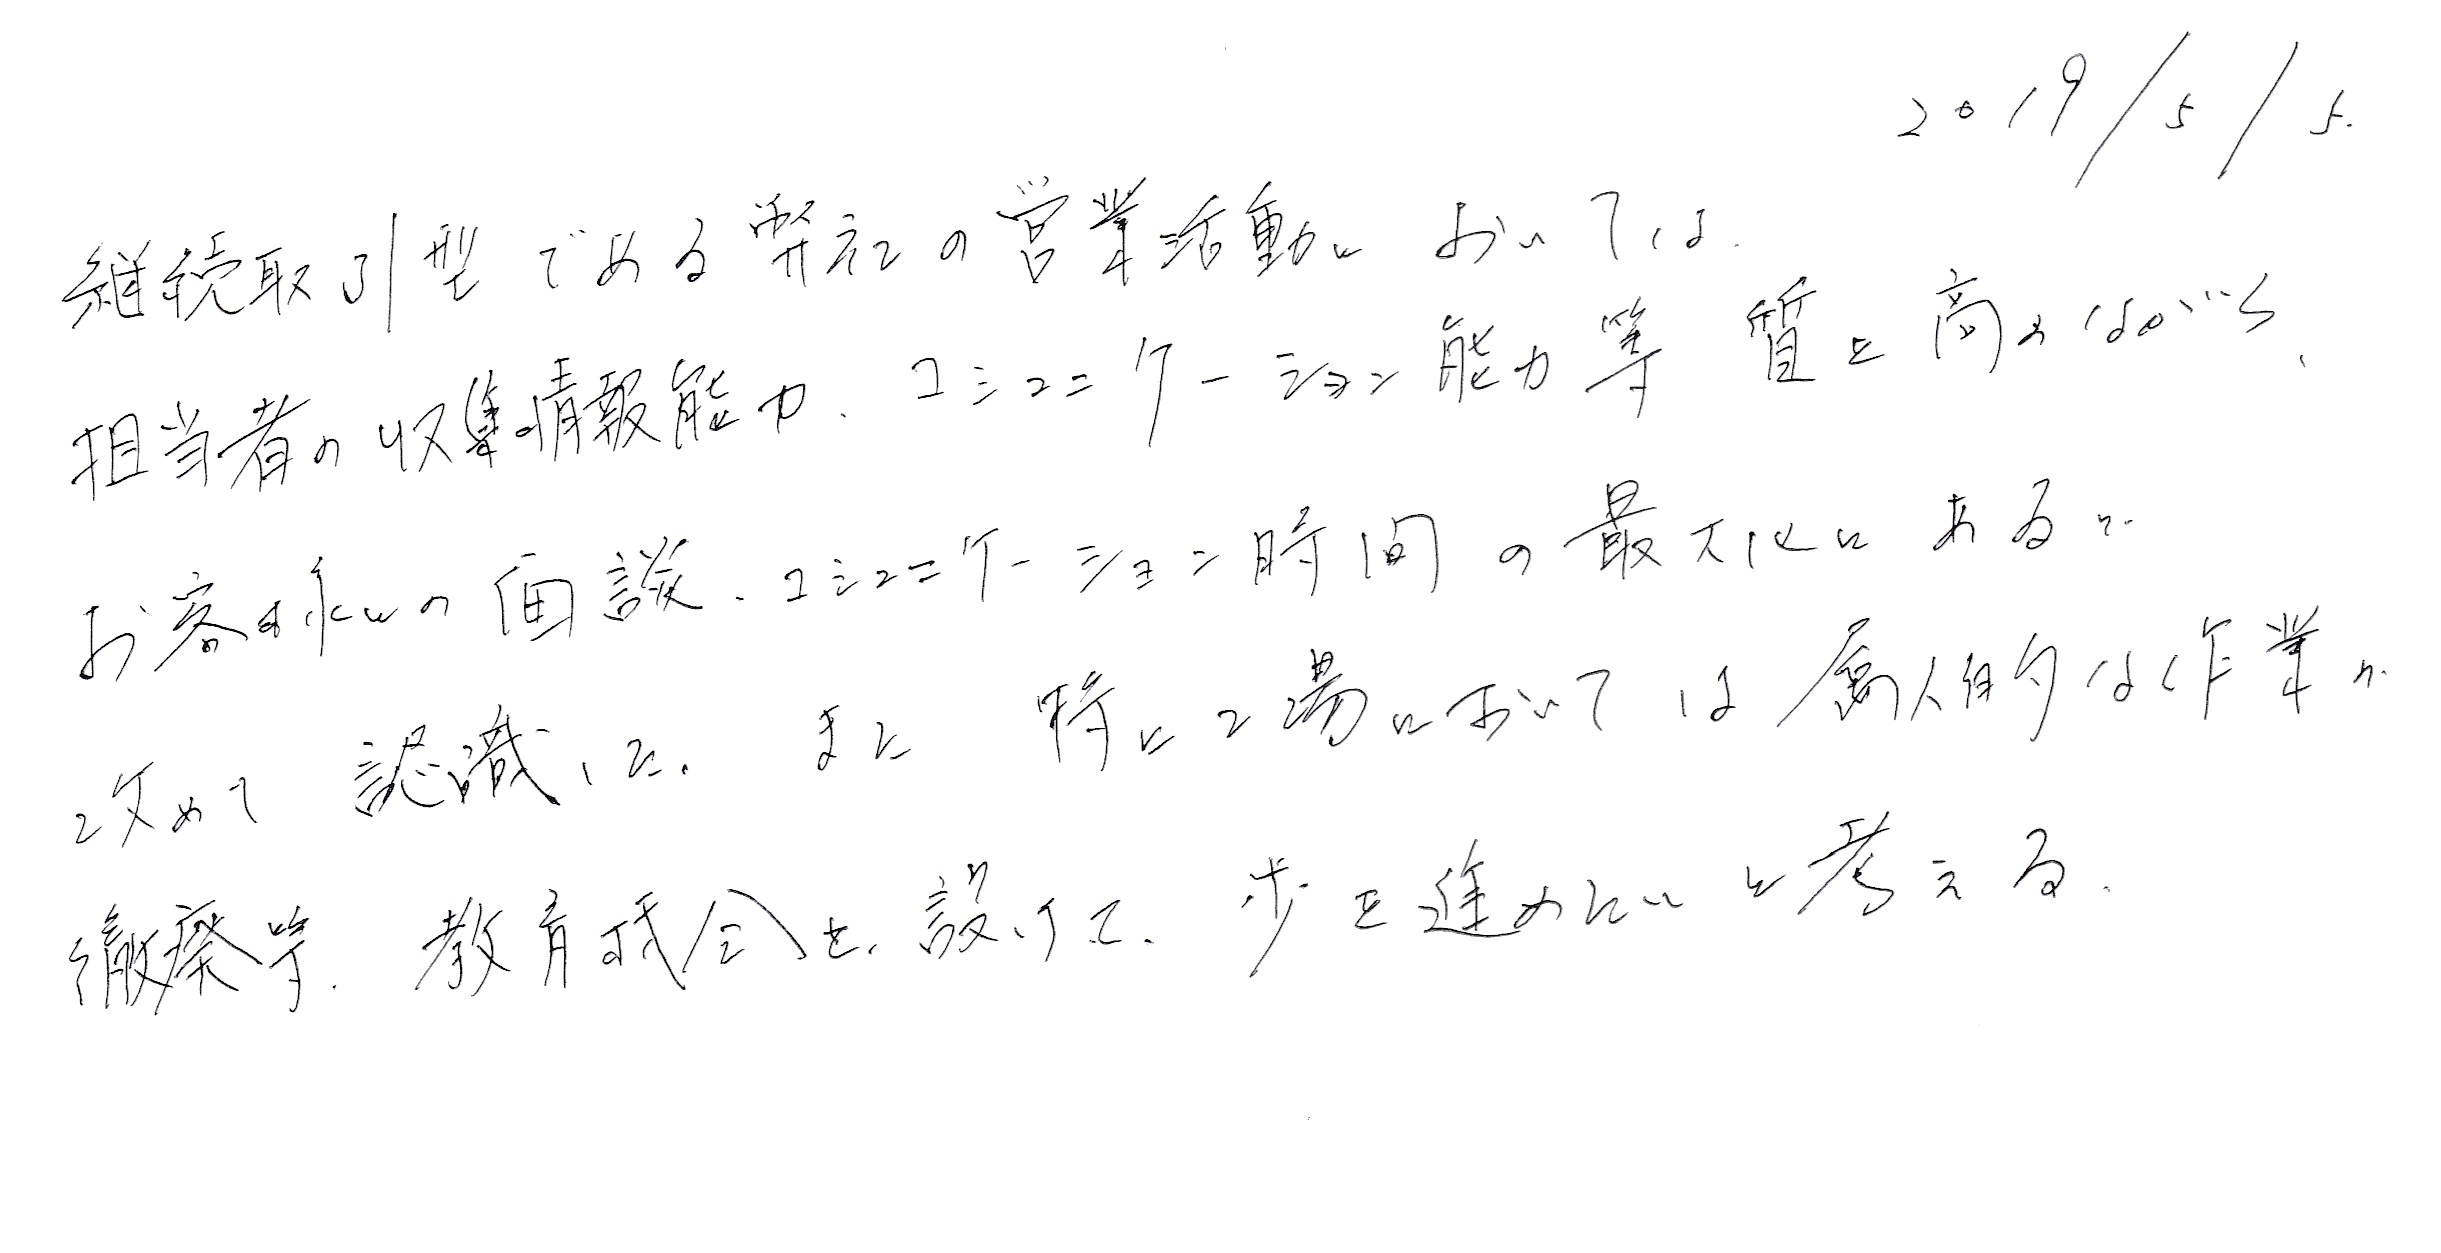 2019/5/5.
継続取引型である弊社の営業活動においては、
担当者の収集情報能力、コミュニケーション能力等 質を高めながら、
お客様との面談、コミュニケーション時間の最大化にあると
改めて 認識した、また 特に工場においては属人的な作業の
等、教育機会を、設けて、歩を進めたいと考える、